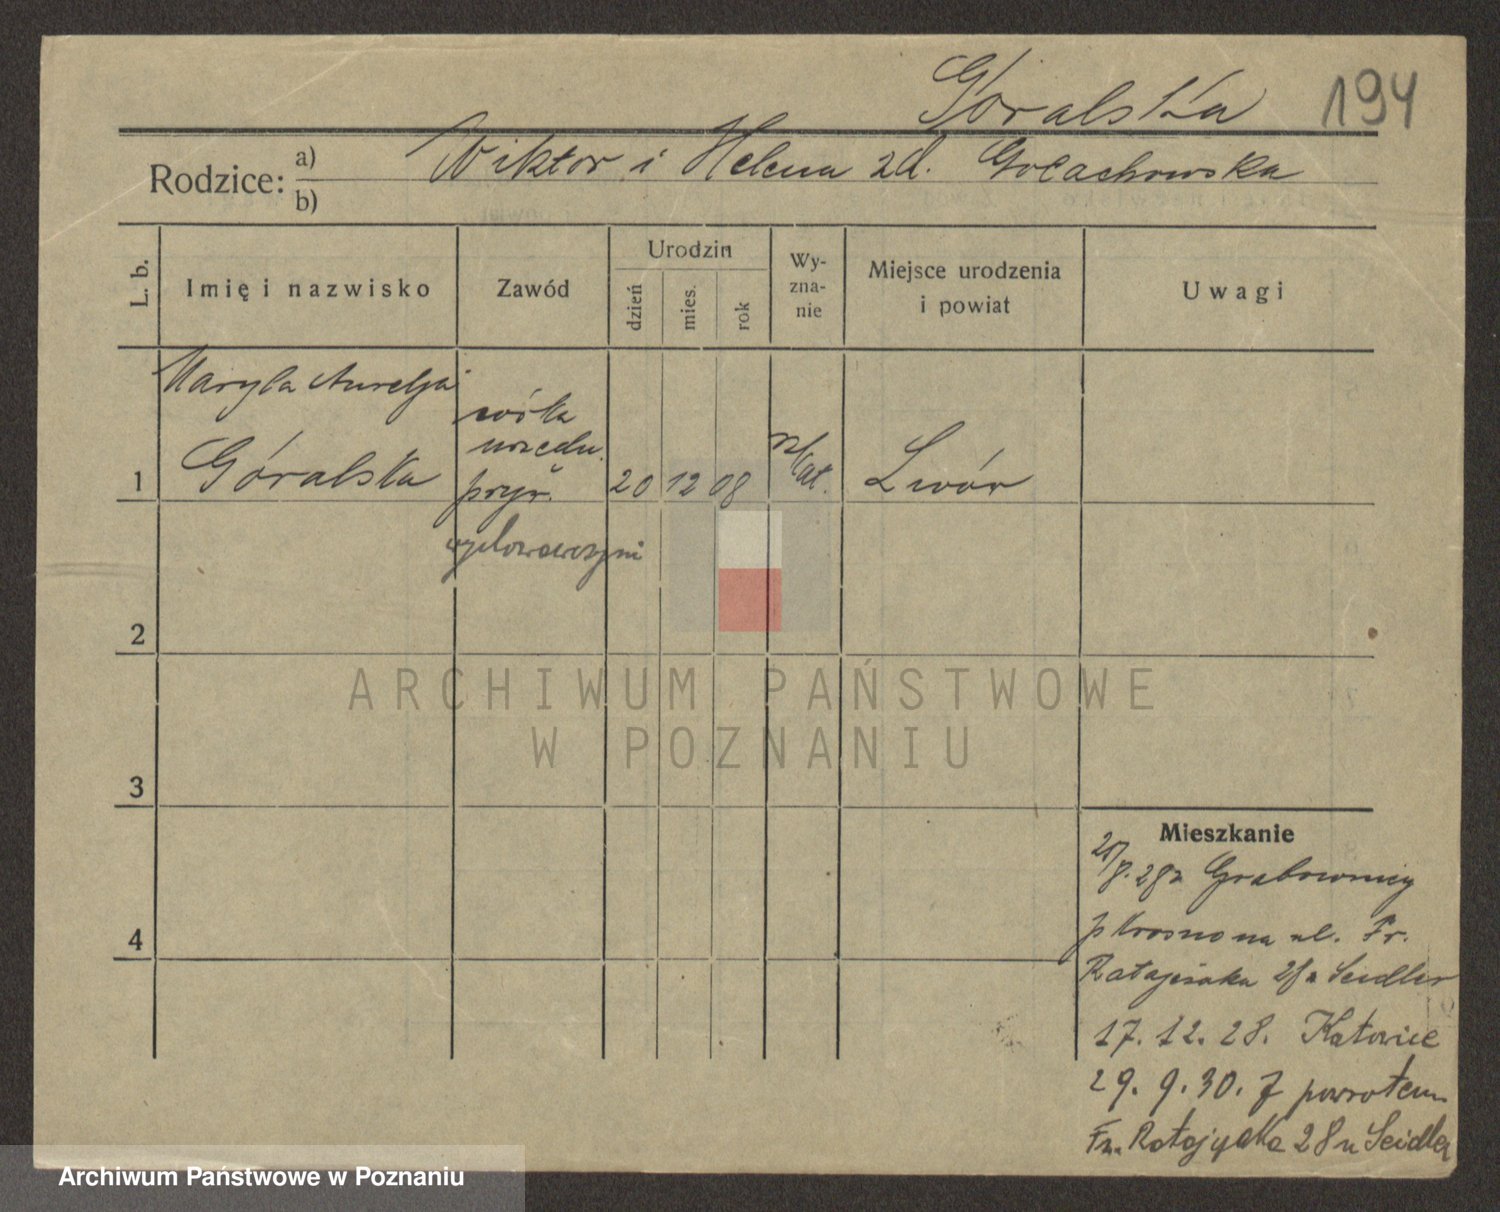 Góralska
194
Rodzice: a) Wiktor i Helena zd. Gołachowska
b)
L. b.
Imię i nazwisko
Zawód
Urodzin
dzień
mies.
rok
Wy-
zna-
nie
Miejsce urodzenia
i powiat
Uwagi
Maryla Aurelja
Góralska
córka
urzędn.
pryw.
1
20 12 08
rz/kat.
Lwów
wychowawczyni
2
ARCHIWUM PAŃSTWOWE
W POZNANIU
3
Mieszkanie
20/8. 28 z Grabownicy
p Krosno na ul. Fr.
Ratajczaka 28 u Seidler
4
17. 12. 28. Katowice
29. 9. 30. Z powrotem
Fr. Ratajczaka 28 u Seidler
Archiwum Państwowe w Poznaniu